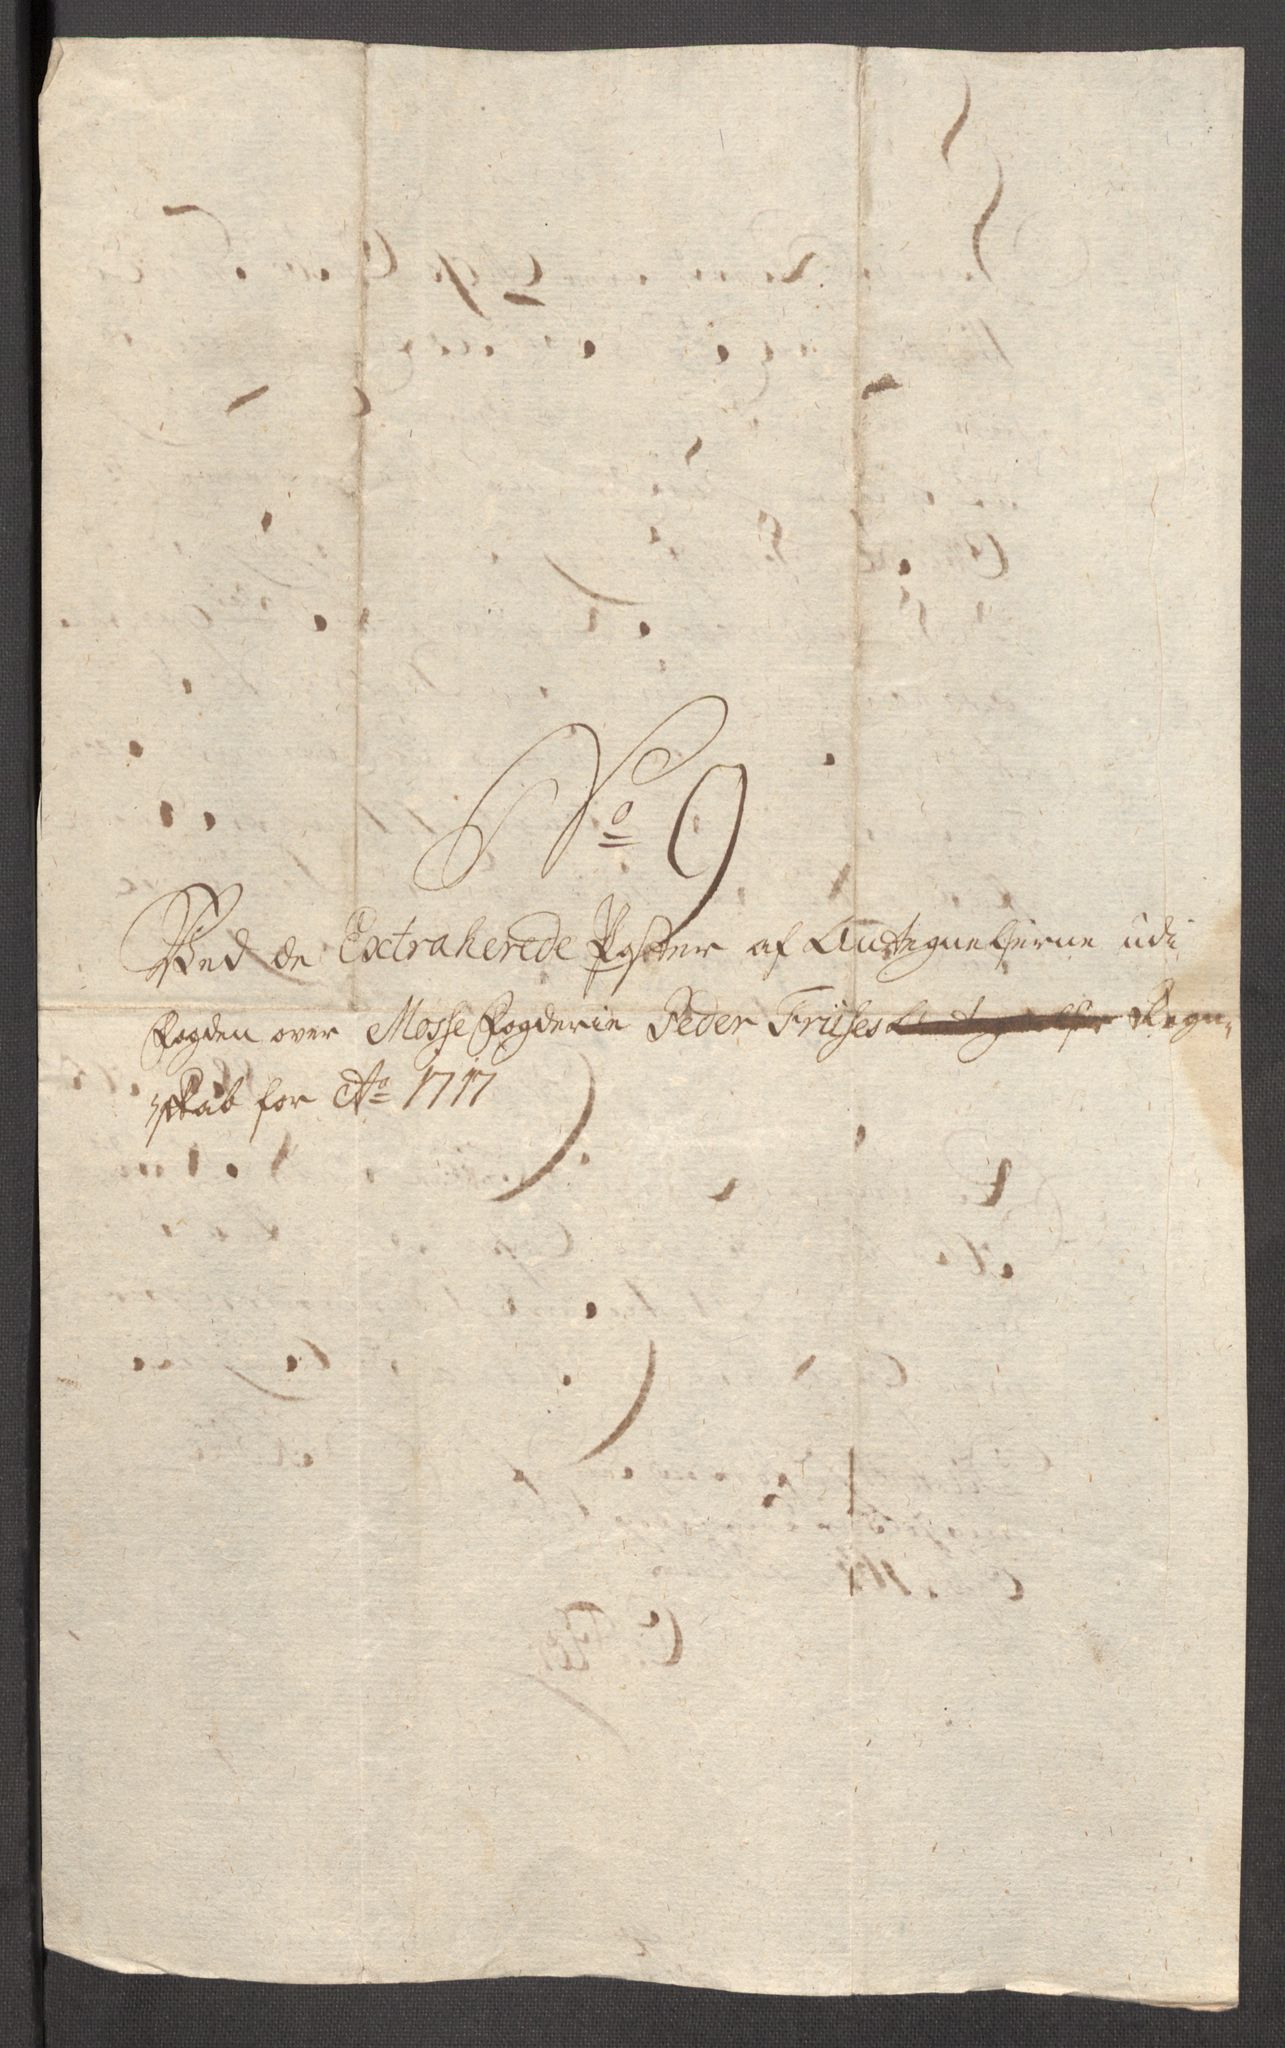 No 9
Ved de Extraherede Poster af Andtegnelserne udi
Fogden over Mosse Fogderie Peder Früses Regn-
skab for Ao 1717